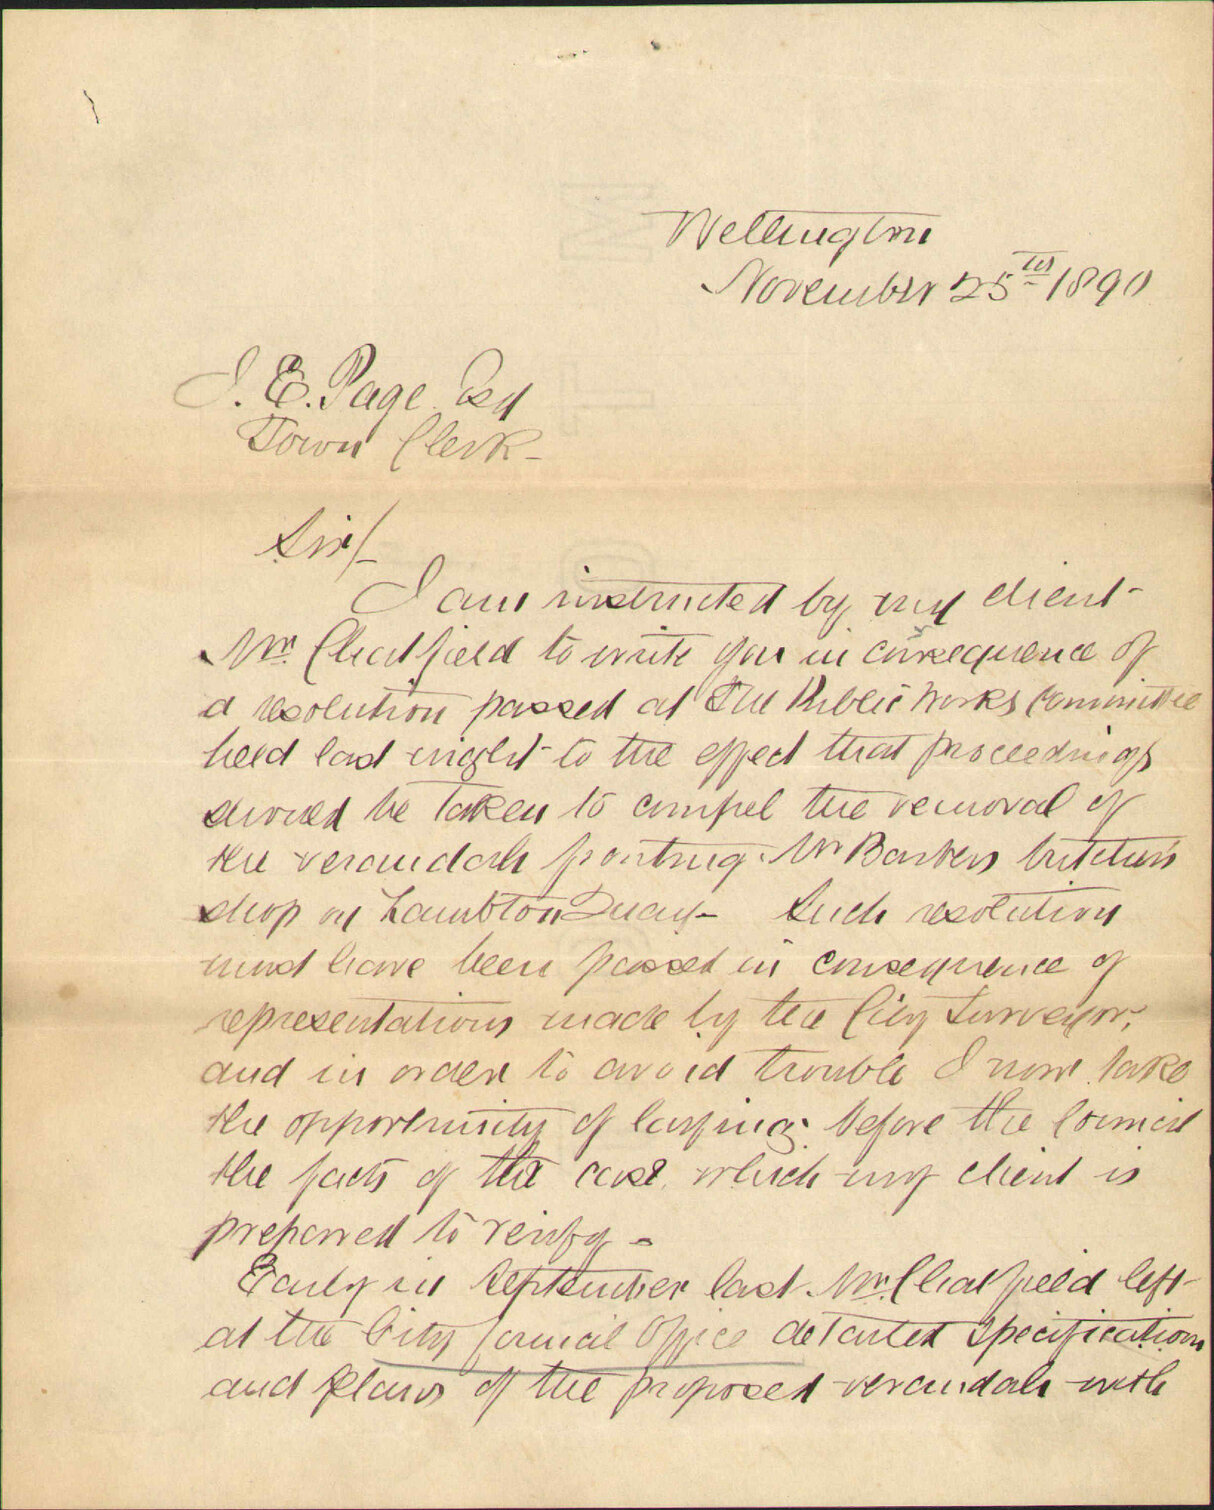 Wellington
November 25th 1890
J. E. Page Esq
Town Clerk -
Sir/-
I am instructed by my client
Mr. Chatfield to write you in consequence of
a resolution passed at the Public Works Committee
held last night to the effect that proceedings
should be taken to compel the removal of
the verandah fronting Mr Barbers butchers
shop on Lambton Quay - Such resolution
must have been passed in consequence of
representations made by the City Surveyor,
and in order to avoid trouble I now take
the opportunity of laying before the Council
the facts of the case, which my client is
prepared to verify -
Early in September last Mr. Chatfield left
at the City Council Office detailed specifications
and plans of the proposed verandah with